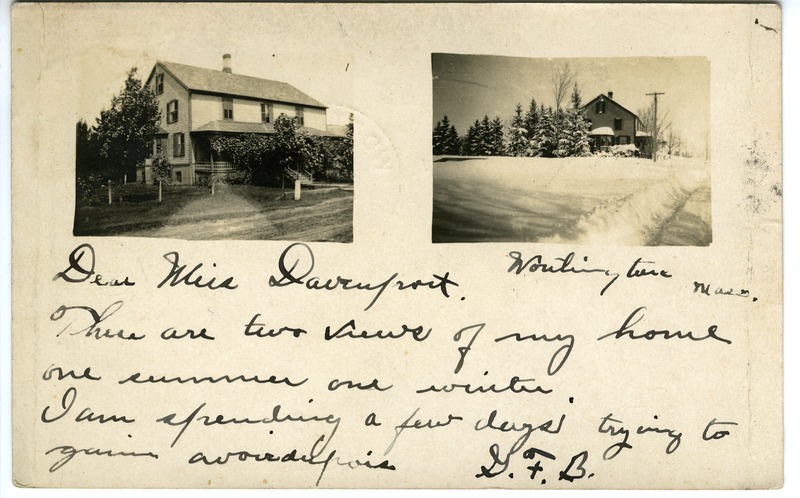 Dear Miss Davenport.
Worthington Mass.
These are two views of my home
one summer one winter.
I am spending a few days trying to
gain avoirdupois
G. F. B.